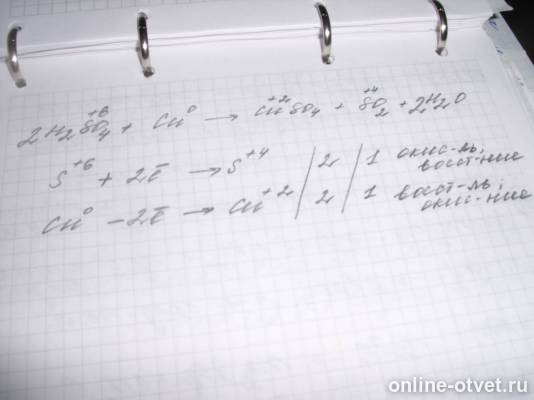 2H₂S⁺⁶O₄ + Cu⁰ → Cu⁺²SO₄ + S⁺⁴O₂ + 2H₂O
S⁺⁶ + 2ē → S⁺⁴ | 2 | 1 окис-ль, восст-ние
Cu⁰ − 2ē → Cu⁺² | 2 | 1 восст-ль, окис-ние
online-otvet.ru